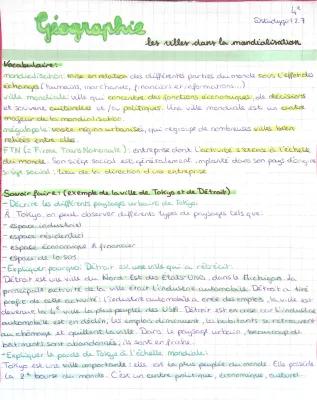 4e
Géographie
les villes dans la mondialisation
Vocabulaire:
mondialisation: mise en relation des différentes parties du monde sous l'effet des
échanges (humains, marchandises, financiers et informations...)
ville mondiale: ville qui concentre des fonctions économiques, de décisions
et souvent culturelles et/ou politiques. Une ville mondiale est un centre
majeur de la mondialisation.
mégalopole: vaste région urbanisée, qui regroupe de nombreuses villes bien
reliées entre elles.
FTN (= Firme TransNationale): entreprise dont l'activité s'étend à l'échelle
du monde. Son siège social est généralement implanté dans son pays d'origine
siège social: lieu de la direction d'une entreprise
Savoir faire: (exemple de la ville de Tokyo et de Détroit)
- Décrire les différents paysages urbains de Tokyo:
À Tokyo, on peut observer différents types de paysages tels que:
- espace industriel
- espace résidentiel
- espace économique & financier
- espace de loisirs
- Expliquer pourquoi Détroit est une ville qui a rétréci:
Détroit est une ville du Nord-Est des États Unis, dans le Michigan. La
principale activité de la ville était l'industrie automobile. Détroit a tiré
profit de cette activité: l'industrie automobile a créé des emplois, la ville est
devenue la 4e ville la plus peuplée des USA. Détroit est en crise car l'industrie
automobile est en déclin, les emplois diminuent, les habitants se retrouvent
au chômage et quittent la ville. Dans le paysage urbain, beaucoup de
bâtiments sont abandonnés, ils sont en friche.
- Expliquer le poids de Tokyo à l'échelle mondiale:
Tokyo est une ville importante: elle est la plus peuplée du monde. Elle possède
la 2e bourse du monde. C'est un centre politique, économique, culturel